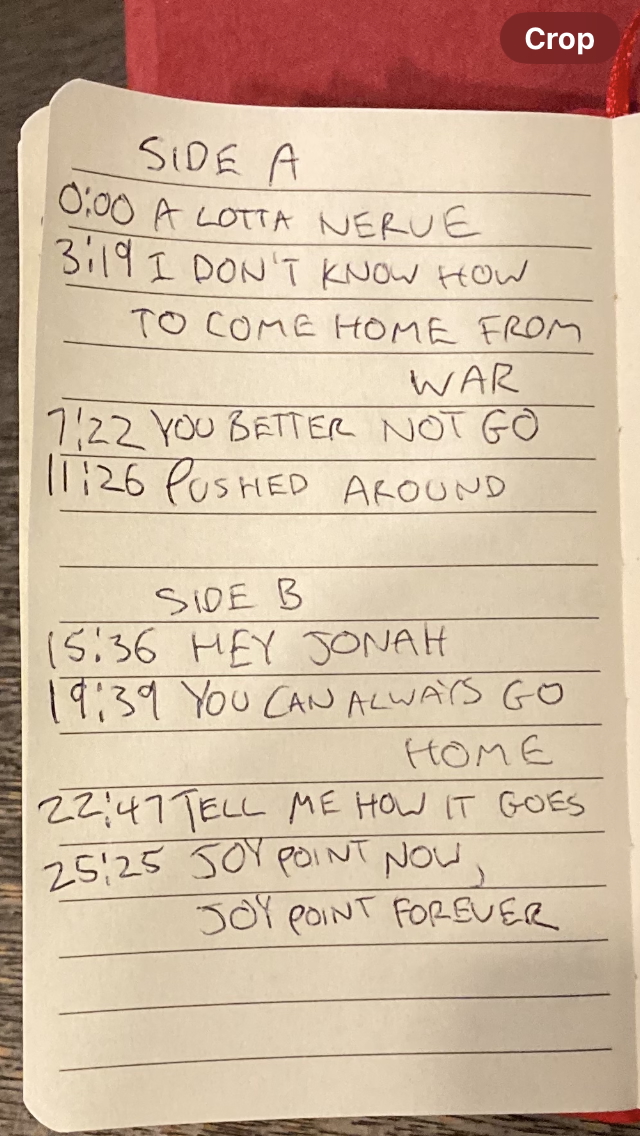 Crop
SIDE A
0:00 A LOTTA NERVE
3:19 I DON'T KNOW HOW
TO COME HOME FROM
WAR
7:22 YOU BETTER NOT GO
11:26 PUSHED AROUND
SIDE B
15:36 HEY JONAH
19:39 YOU CAN ALWAYS GO
HOME
22:47 TELL ME HOW IT GOES
25:25 JOY POINT NOW,
JOY POINT FOREVER